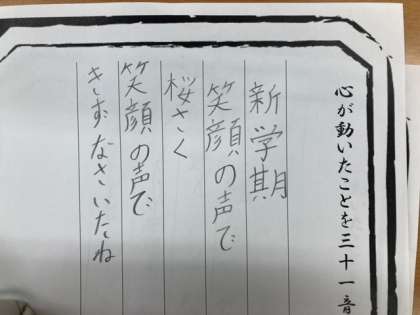 心が動いたことを三十一音
新学期
笑顔の声で
桜さく
笑顔の声で
きずなさいたね